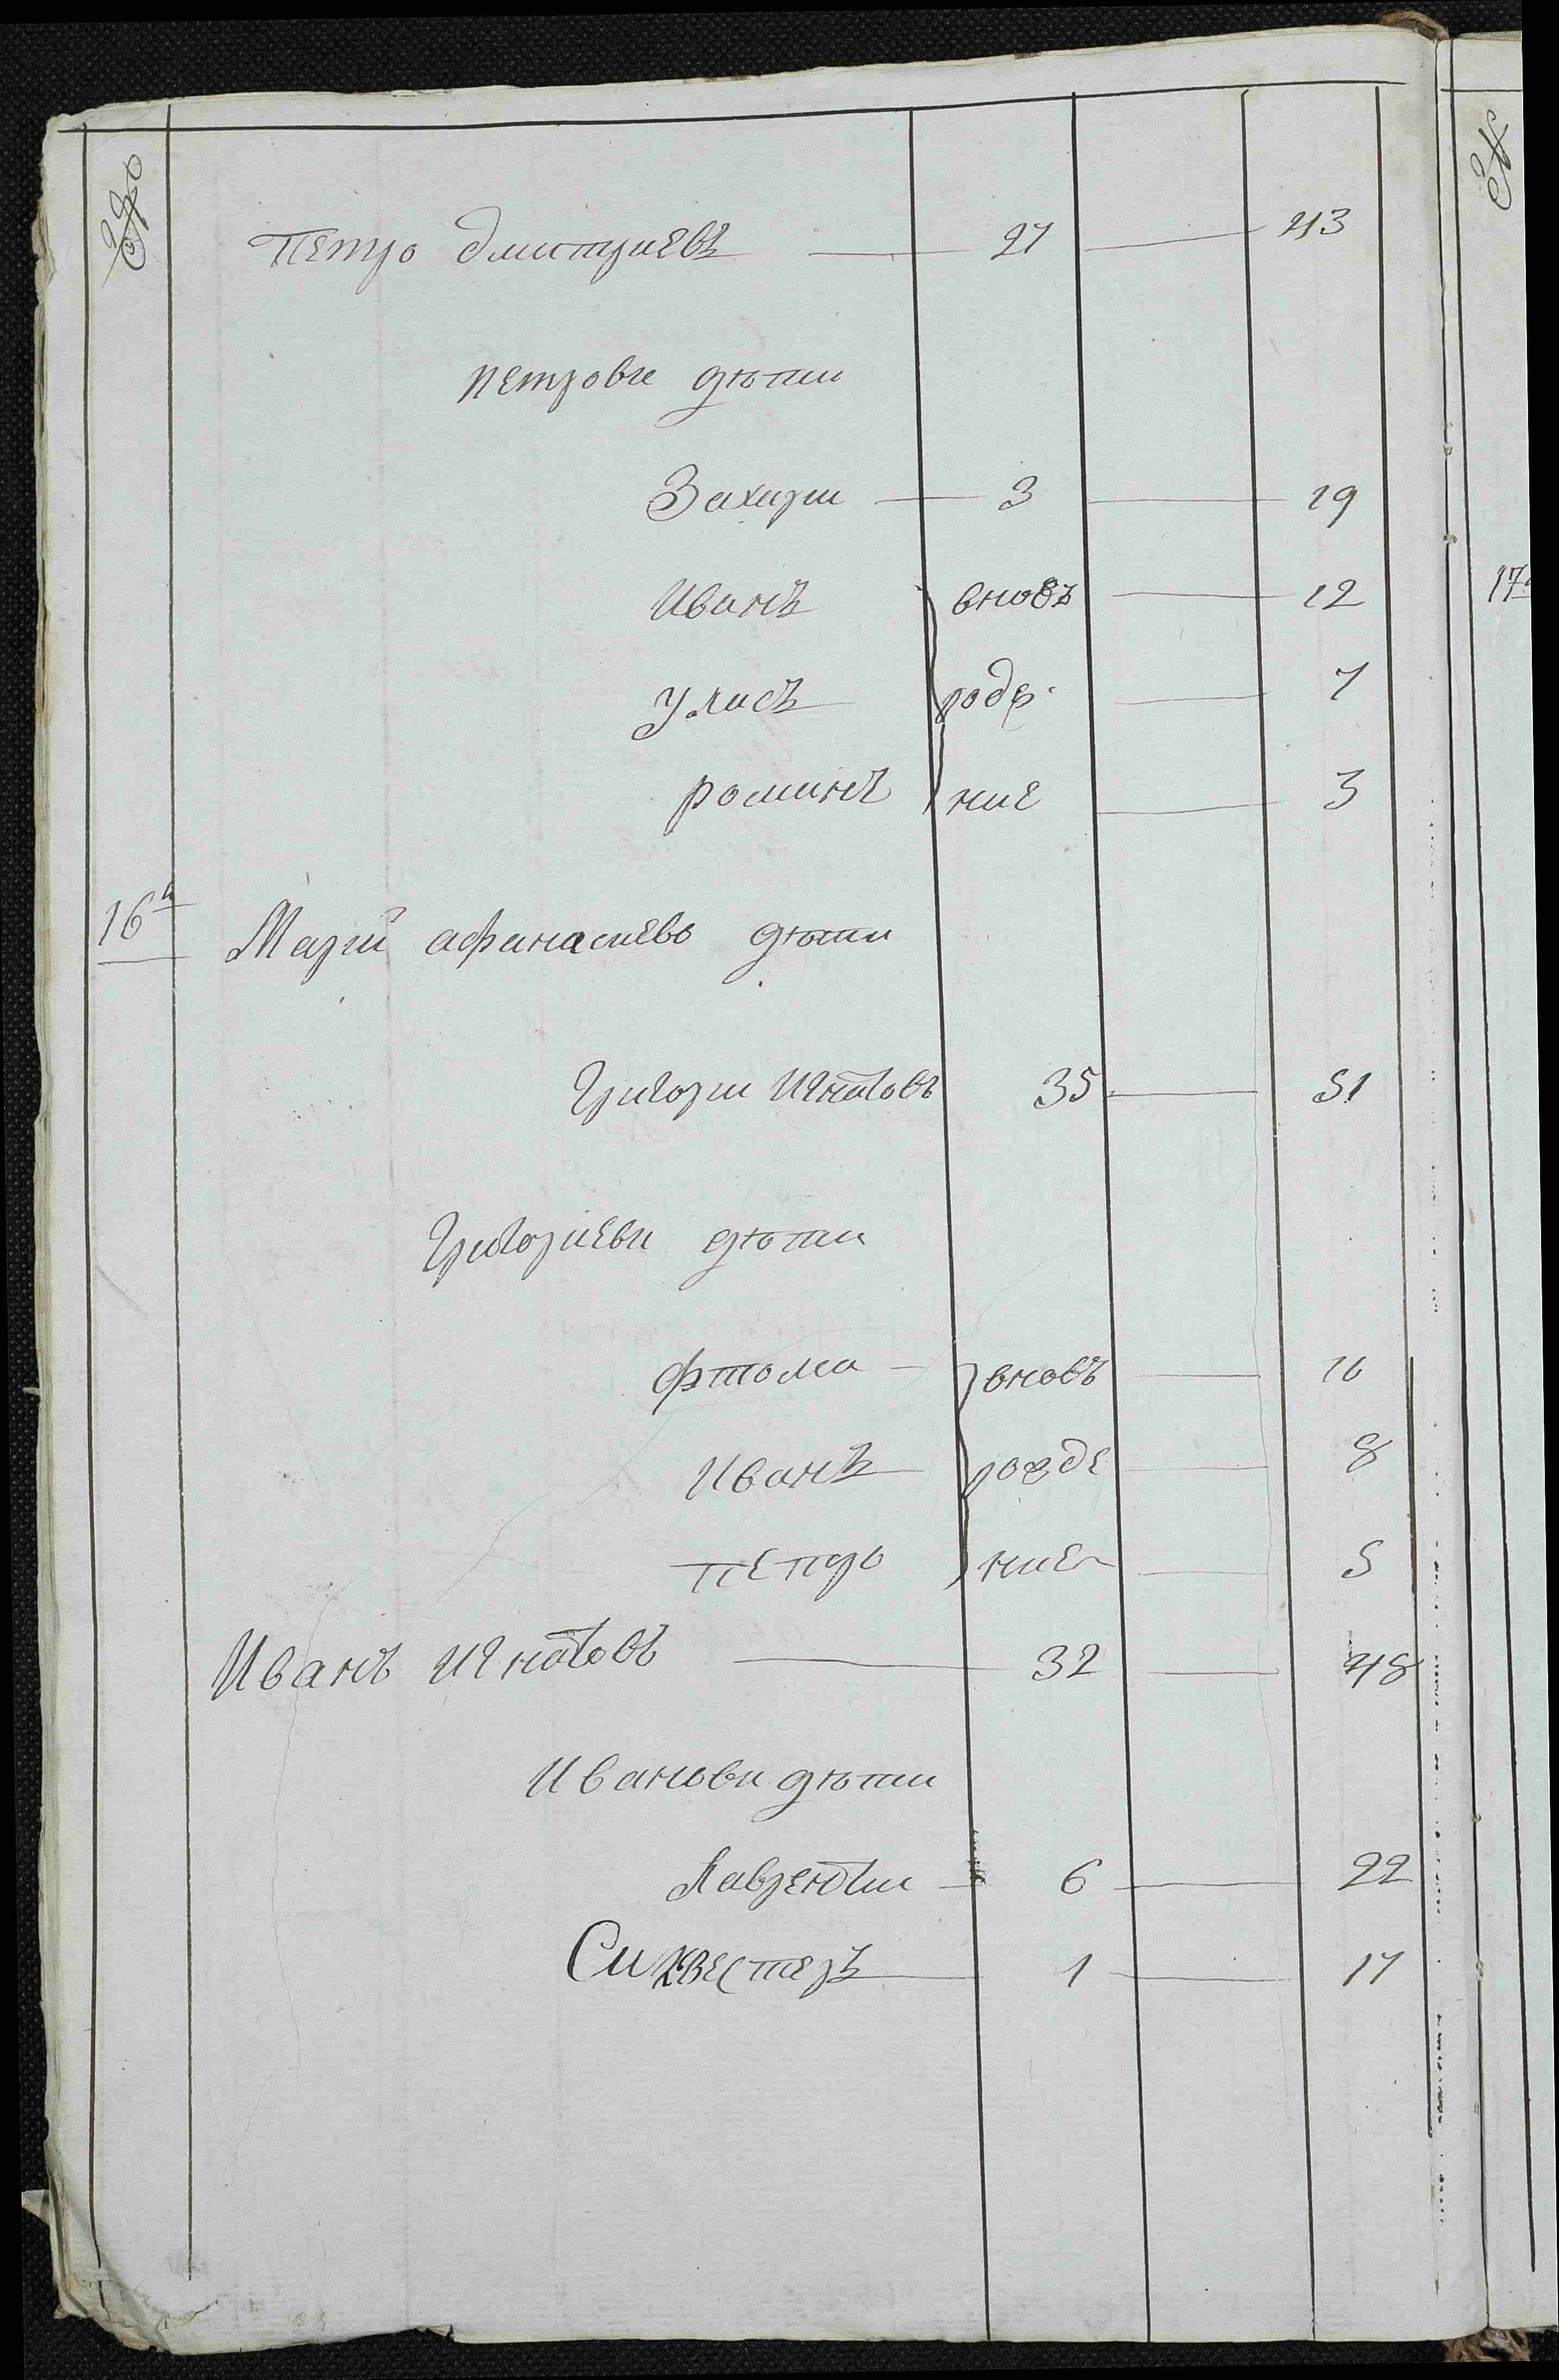 №о
Петро дмитриевъ 27 43
петрови дѣти
Захари 3 19
Иванъ вновъ 12
уласъ роде 7
романъ ние 3
16й Марӣ афанасиево дѣти
Григори Игнатовъ 35 51
Григориеви дѣти
фтома вновъ 10
Иванъ рожде 8
петро ние 5
Иванъ Игнатовъ 32 48
Иванови дѣти
Лаврентии 6 22
Силвестеръ 1 17
№
17